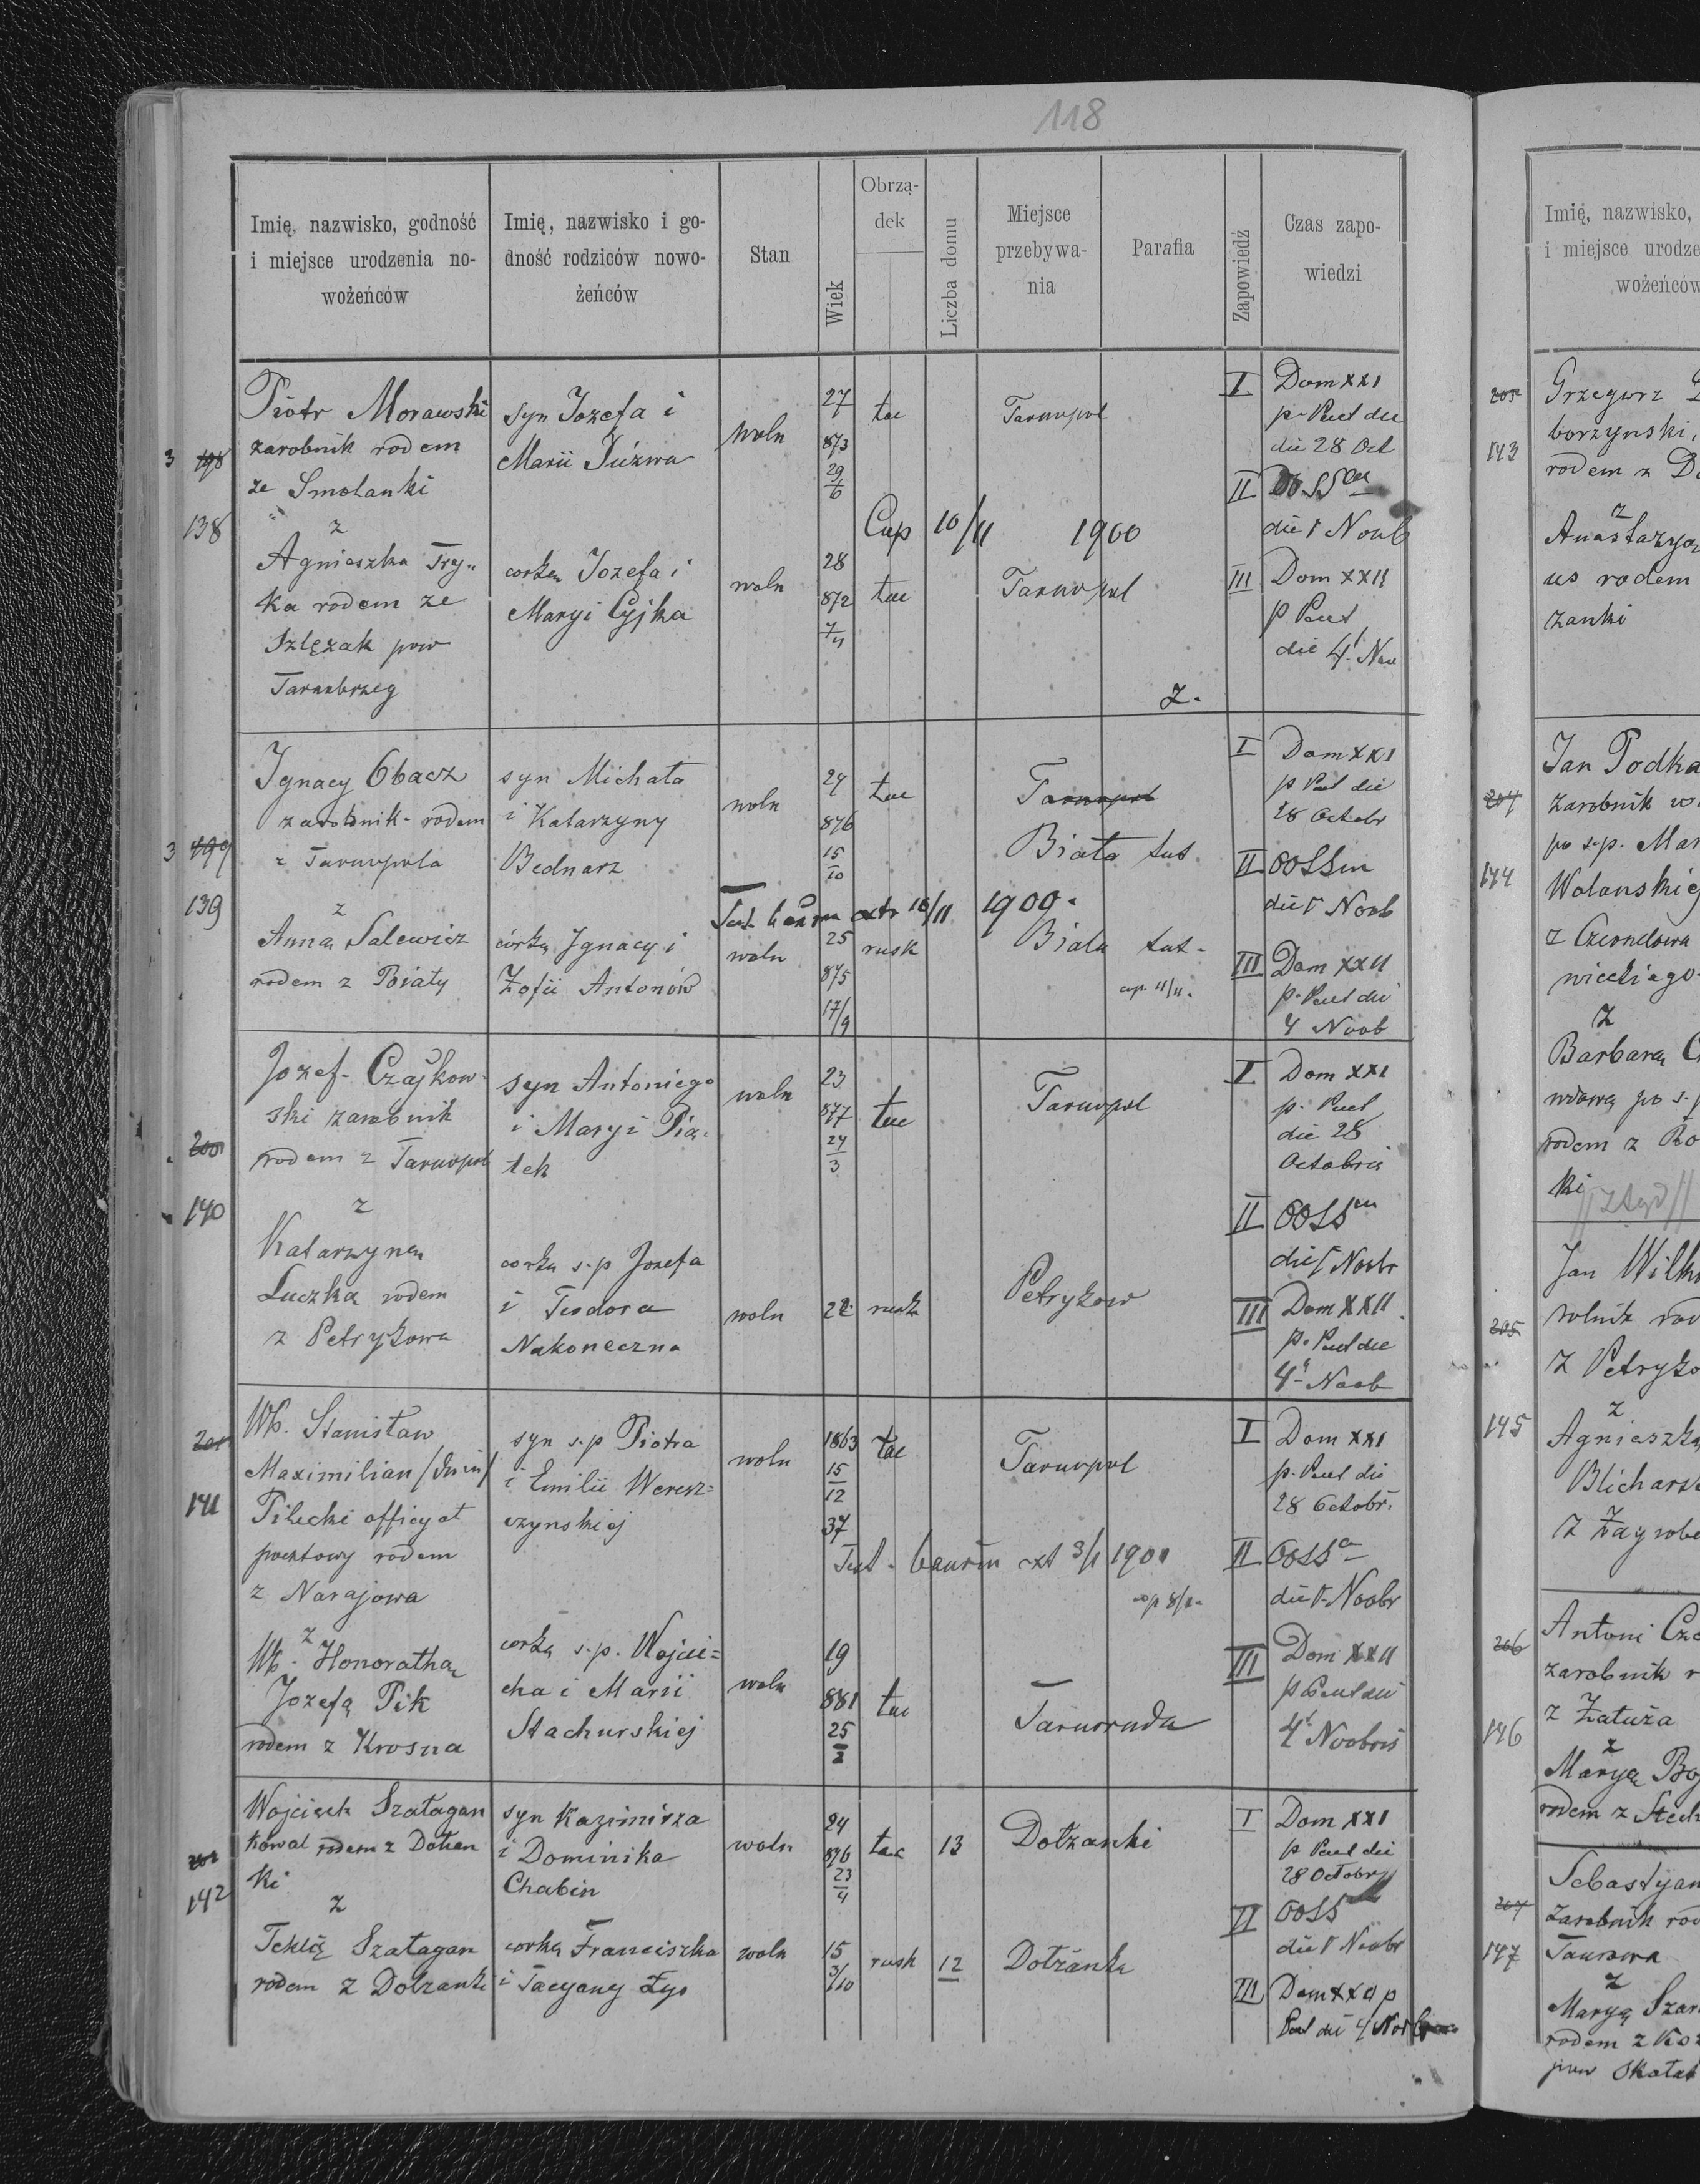 118
Imię, nazwisko, godność i miejsce urodzenia nowożeńców
Imię, nazwisko i godność rodziców nowożeńców
Stan
Wiek
Obrządek
Liczba domu
Miejsce przebywania
Parafia
Zapowiedź
Czas zapowiedzi
3 198
138
Piotr Morawski
zarobnik rodem
ze Smolanki
z
Agnieszka Try„
ka rodem ze
Szlęzak pow
Tarnobrzeg
syn Jozefa i
Marii Júzwa
corka Jozefa i
Maryi Cyjka
woln
woln
27
873
29/6
28
872
7/11
łac
łac
Cop 10/11 1900
Tarnopol
Tarnopol
Z.
I Dom XXI
p. Pent die
die 28 Oct
II OO.SS
die 1 Novb
III Dom XXII
p Pent
die 4 Nov
3 199
139
Ignacy Obacz
zarobnik - rodem
z Tarnopola
z
Anną Salewicz
rodem z Biały
syn Michała
i Katarzyny
Bednarz
córką Ignacy i
Zofii Antonów
woln
woln
24
876
15/10
25
875
17/9
łac
rusk
Test. bann extr 10/11 1900.
Tarnopol
Biała tut.
Biała tut.
cop. 11/11.
I Dom XXI
p Pent die
28 Octobr
II OOSSm
die 1 Novb
III Dom XXII
p. Pent die
4 Novb
200
140
Jozef Czajkow-
ski zarobnik
rodem z Tarnopol
z
Katarzyna
Luczka rodem
z Petrykowa
syn Antoniego
i Maryi Pią-
tek
corka s.p Jozefa
i Teodora
Nakoneczna
woln
woln
23
877
24/3
22
łac
rusk
Tarnopol
Petrykow
I Dom XXI
p. Pent
die 28
Octobris
II OOSS
die 1 Novbr
III Dom XXII
p. Pent die
4 Novb
201
141
Wb. Stanisław
Maximilian
Pilecki officyał
pocztowy rodem
z Narajowa
z
Wb. Honorathą
Jozefą Pik
rodem z Krosna
syn s.p Piotra
i Emilii Weresz=
czynskiej
corka s.p. Wojcie=
cha i Marii
Stachurskiej
woln
woln
1863
15/12
37
19
881
25/2
łac
łac
Test. bannin ext 3/1 1901
cop 8/1.
Tarnopol
Tarnoruda
I Dom XXI
p. Pent die
28 Octobr.
II OOSS
die 1 Novbr
III Dom XXII
p Pent die
4 Novbris
202
142
Wojciech Szatagan
kowal rodem z Dołzan
ki
z
Teklą Szatagan
rodem z Dołzank
syn Kazimirza
i Dominika
Chabin
corką Franciszka
i Tacyany Łys
woln
woln
24
876
23/4
15
3/10
łac
rusk
13
12
Dołzanki
Dołzanka
I Dom XXI
p Pent die
28 Octobr
II OOSS
die 1 Novbr
III Dom XXII p
Pent die 4 Novbr
Imię, nazwisko,
i miejsce urodze
wożeńców
203
143
Grzegorz
borzynski,
rodem z D
z
Anastazyą
us rodem
zanki
204
144
Jan Podka
zarobnik
po s.p. Mar
Wolanskiej
z Czernelowa
nieckiego
z
Barbarą
wdową po s.p
rodem z
ki
205
145
Jan Wilk
rolnik rod
z Petryko
z
Agnieszką
Blichars
z Zagrobe
206
146
Antoni Cze
zarobnik r
z Załuża
z
Maryą Boj
rodem z Stech
207
147
Sebastyan
zarobnik rod
z
Maryą Szar
rodem z Koz
pow Skałat